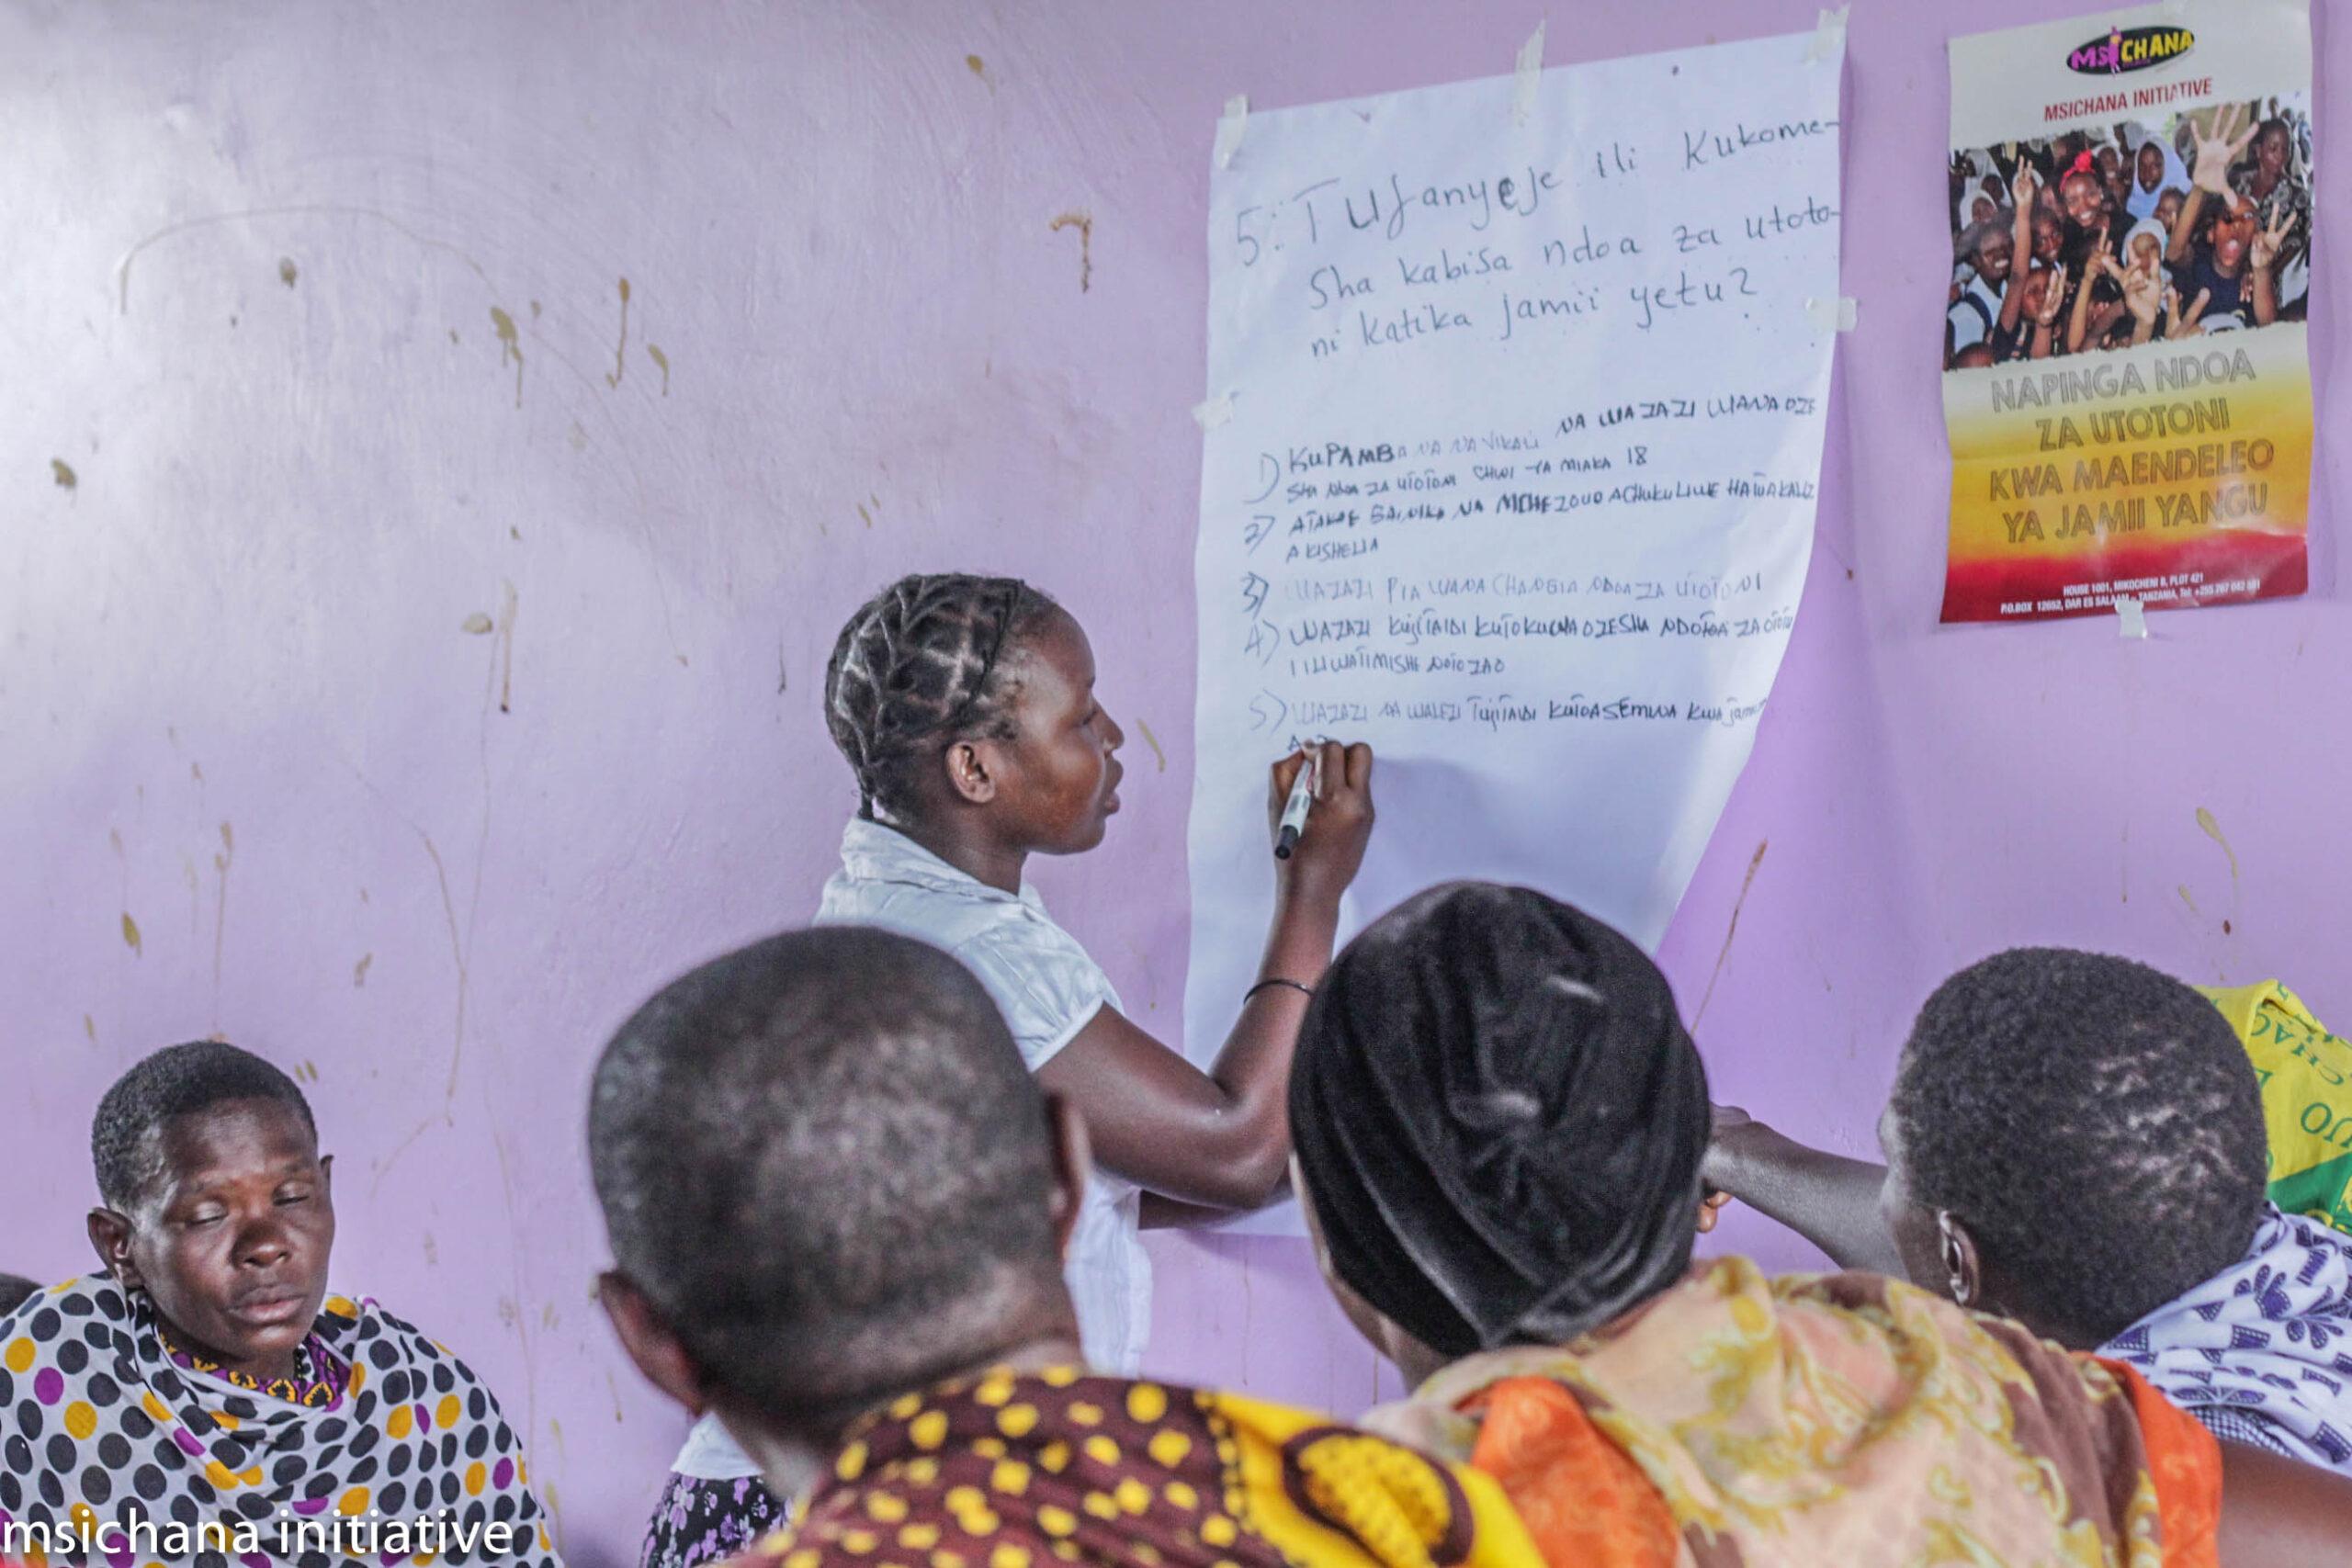 5: Tufanyeje ili Kukome-
Sha kabisa ndoa za utoto-
ni katika jamii yetu?
1) KUPAMBANA NA VIKALI NA WAZAZI WANAOZE
SHA NDOA ZA UTOTONI CHINI YA MIAKA 18
2) NA MCHEZOUO ACHUKULIWE
AKISHELIA
3) WAZAZI PIA WANACHANGIA NDOA ZA UTOTONI
4) WAZAZI KUJITAIDI
ILI WATIMISHE
5) WAZAZI NA WALEZI TUJITAIDI KUTOASEMWA KWA
MSICHANA
MSICHANA INITIATIVE
NAPINGA NDOA
ZA UTOTONI
KWA MAENDELEO
YA JAMII YANGU
HOUSE 1001, MIKOCHENI B, PLOT 421
P.O.BOX 12652, DAR ES SALAAM - TANZANIA, Tel:
msichana initiative